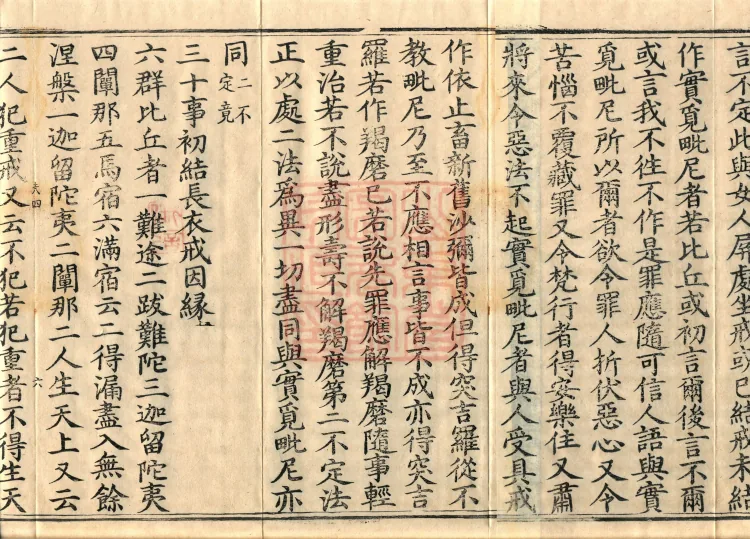 言不定此與女人屏處坐戒或已結戒未結
作實覓毗尼者若比丘或初言爾後言不爾
或言我不往不作是罪應隨可信人語與實
覓毗尼所以爾者欲令罪人折伏惡心又令
苦惱不覆藏罪又令梵行者得安樂住又肅
將來令惡法不起實覓毗尼者與人受具戒
作依止畜新舊沙彌皆成但得突吉羅從不
教毗尼乃至不應相言事皆不成亦得突吉
羅若作羯磨已若說先罪應解羯磨隨事輕
重治若不說盡形壽不解羯磨第二不定法
正以處二法爲異一切盡同與實覓毗尼亦
同二不定竟
三十事初結長衣戒因緣上
六群比丘者一難途二跋難陀三迦留陀夷
四闡那五馬宿六滿宿云二得漏盡入無餘
涅槃一迦留陀夷二闡那二人生天上又云
夫四
六
二人犯重戒又云不犯若犯重者不得生天